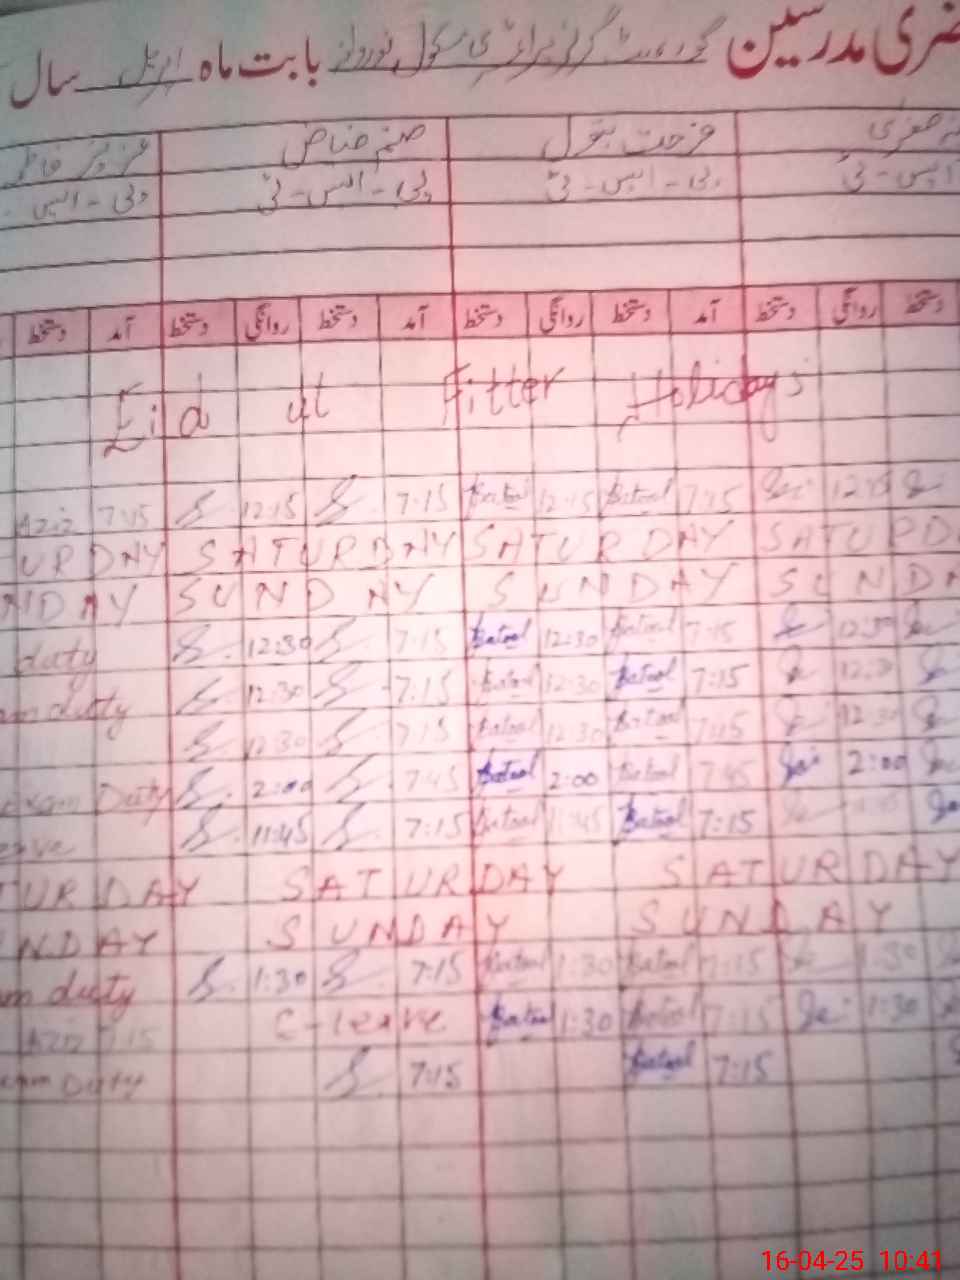 ضری مدرسین گورنمنٹ گرلز پرائمری سکول نورولز بابت ماہ اپریل سال
صغری فرحت بتول صنم
ایس - ٹی پی - ایس - ٹی پی - ایس - ٹی پی - ایس
دستخط روانگی دستخط آمد دستخط روانگی دستخط آمد دستخط روانگی دستخط آمد دستخط
Eid ul Fitter Holidays
Aziz 7:15 12:15 7:15 Batool 12:15 Batool 7:15 12:15
URDAY SATURDAY SATURDAY SATURD
NDAY SUNDAY SUNDAY SUNDA
duty 12:30 7:15 Batool 12:30 Batool 7:15 12:30
am duty 12:30 7:15 Batool 12:30 Batool 7:15 12:30
12:30 7:15 Batool 12:30 Batool 7:45 12:30
Exam Duty 2:00 7:45 Batool 2:00 Batool 7:45 2:00
eave 11:45 7:15 Batool 11:45 Batool 7:15
TURDAY SATURDAY SATURDAY
NDAY SUNDAY SUNDAY
am duty 1:30 7:15 Batool 1:30 Batool 7:15 1:30
Aziz 7:15 C-leave Batool 1:30 Batool 7:15 1:30
Exam Duty 7:15 Batool 7:15
16-04-25 10:41